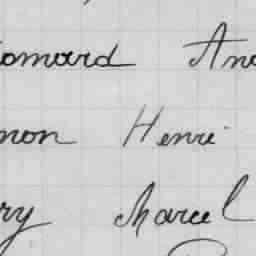 omard An
mon Henri
ry Marcel